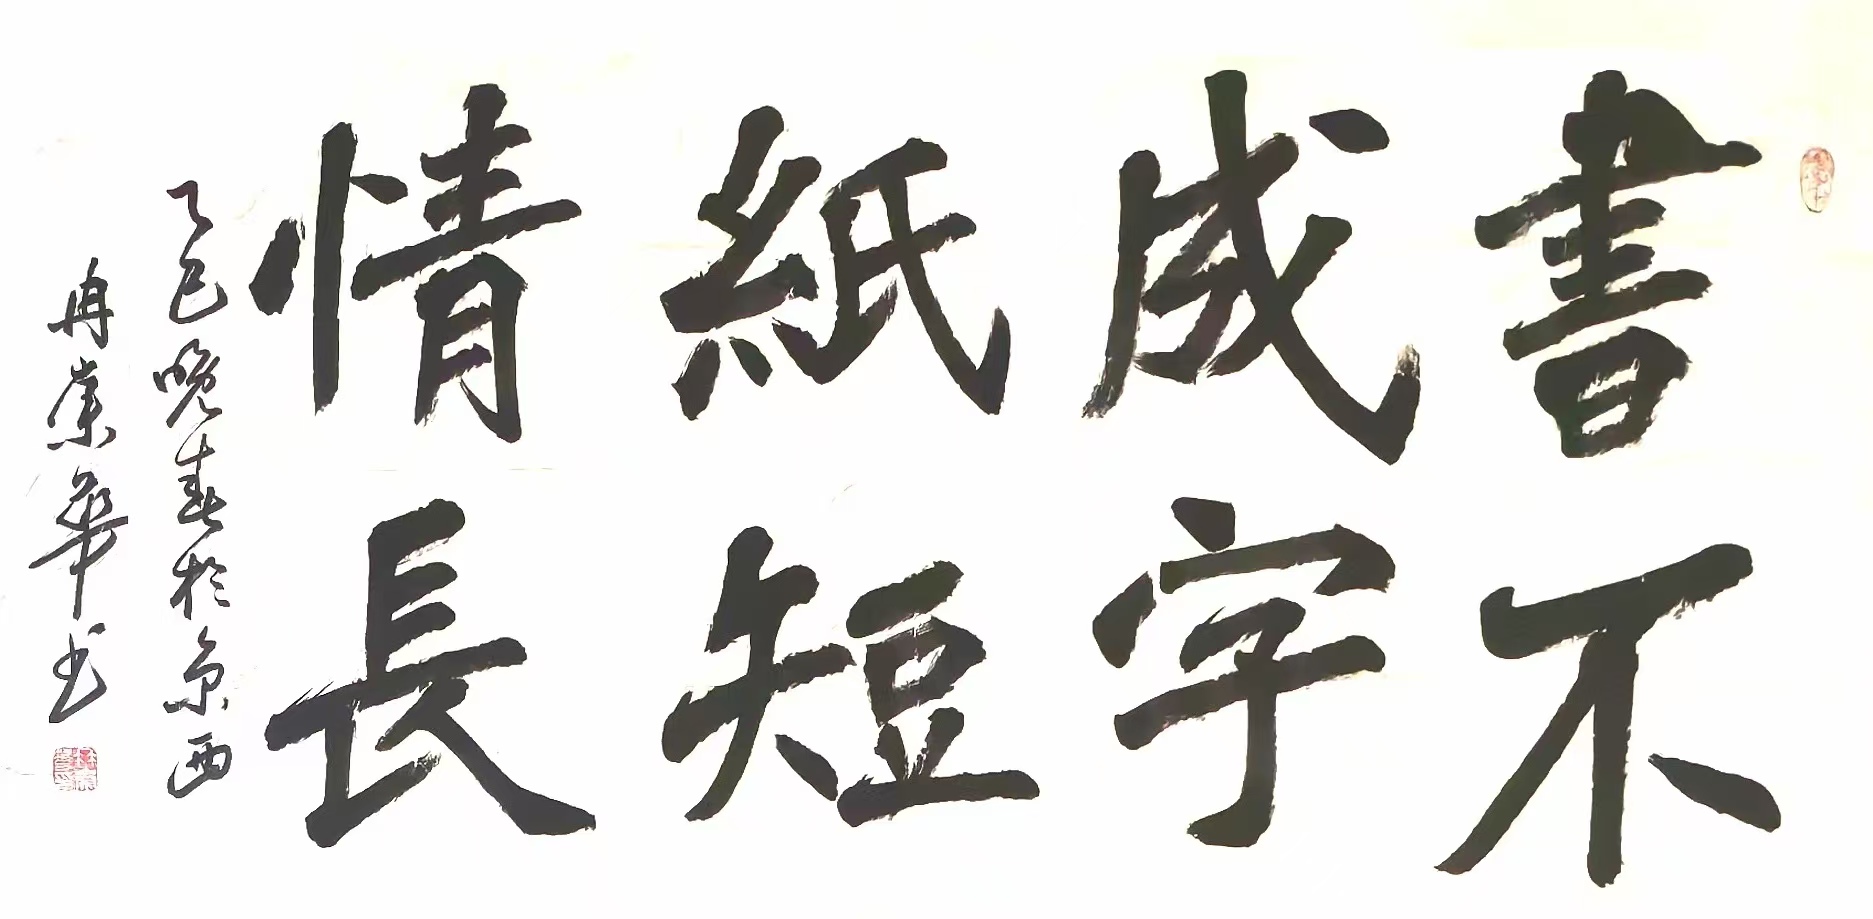 書不
成字
紙短
情長
乙巳晚春於京西
冉崇華书